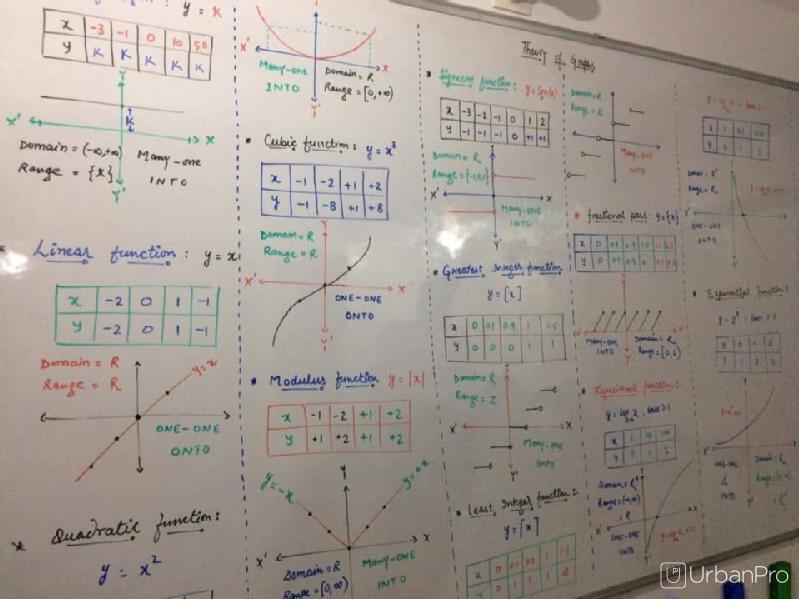 y = k
x -3 -1 0 10 50
y K K K K K
y'
K
x' x
Domain = (-∞,+∞)
Range = {x}
Many-one
INTO
y'
Linear function: y = x
x -2 0 1 -1
y -2 0 1 -1
Domain = R
Range = R
y=x
ONE-ONE
ONTO
Quadratic function:
y = x²
x' x
Many-one
INTO
Domain = R
Range = [0,+∞)
y'
Cubic function: y = x³
x -1 -2 +1 +2
y -1 -8 +1 +8
Domain = R
Range = R
Y
x' x
ONE-ONE
ONTO
y'
Modulus function y = |x|
x -1 -2 +1 +2
y +1 +2 +1 +2
y=-x
Y
y=+x
x' x
Domain = R
Range = [0,∞)
Many-ONE
INTO
Theory of Graphs
Signum function: y = Sgn(x)
x -3 -2 -1 0 1 2
y -1 -1 -1 0 +1 +1
Domain = R
Range = {-1,0,1}
x' x
Many-ONE
INTO
y'
Greatest Integer function
y = [x]
x 0 0.1 0.9 1 1.5
y 0 0 0 1 1
Domain = R
Range = Z
x' x
Many-one
Into
y'
Least Integer function:
y = [x]
Domain = R
Range = R
Many-one
INTO
fractional part: y = {x}
Many-one
INTO
Domain = R
Logarithmic function:
x 1 10 100
y 0 1 2
ONE-ONE
INTO
ONE-ONE
ONTO
Exponential function:
ONE-ONE
INTO
UrbanPro